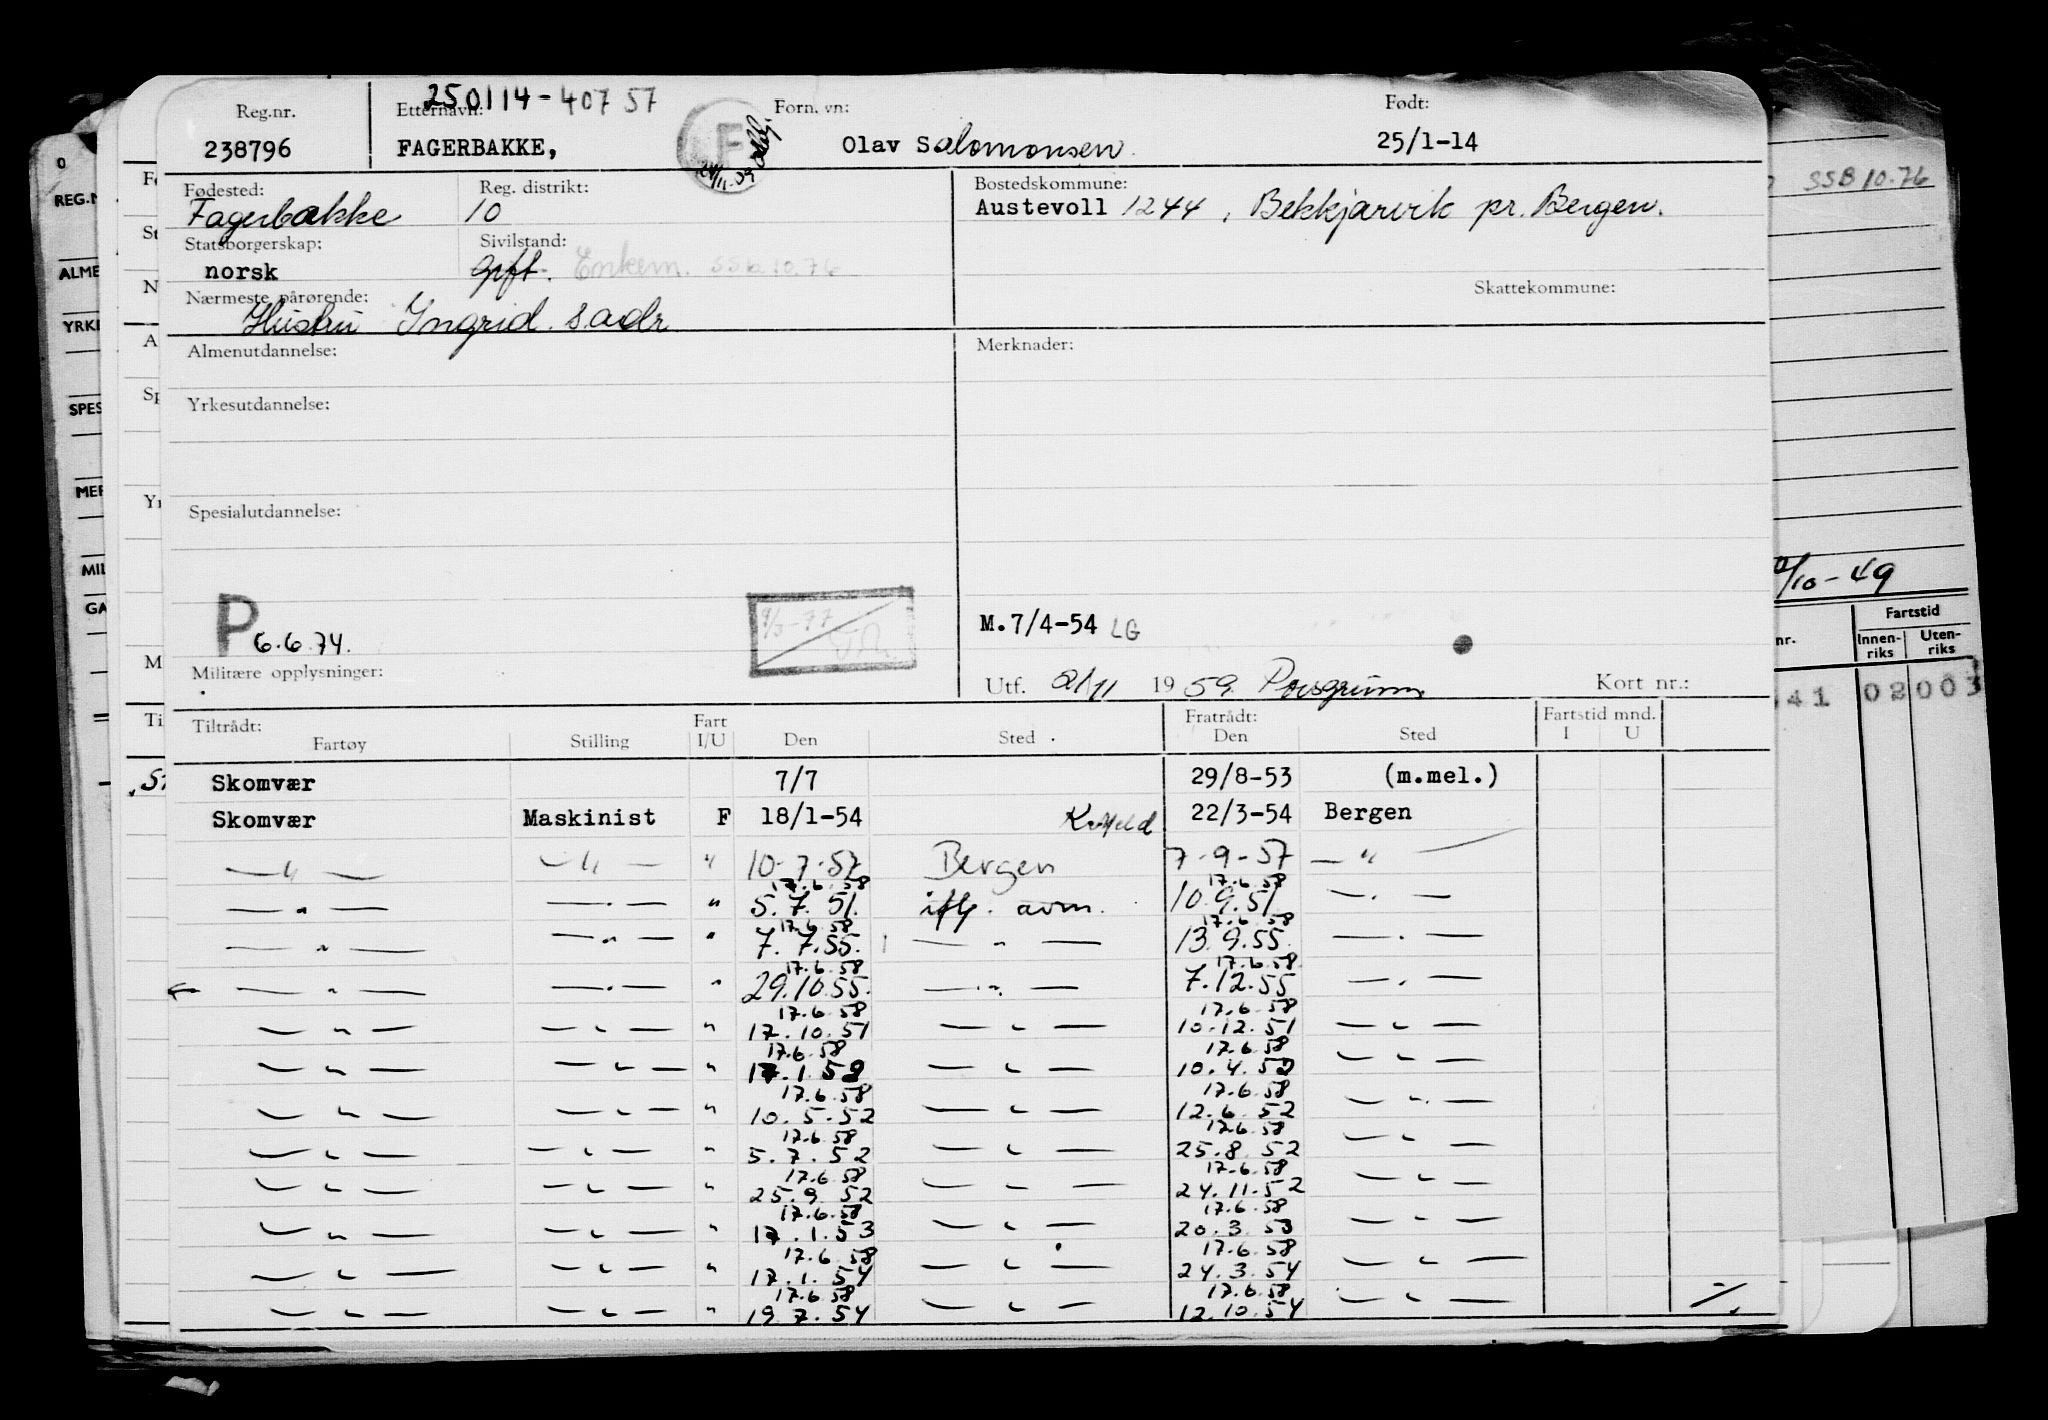 250114-40757
Reg.nr. Etternavn: Forn. vn: Født:
238796 FAGERBAKKE, F Olav Salomonsen. 25/1-14
Fødested: Reg. distrikt: Bostedskommune:
Fagerbakke 10 Austevoll 1244, Bekkjarvik pr. Bergen.
Statsborgerskap: Sivilstand:
norsk Gift. Enkem. SSB.10.76
Nærmeste pårørende: Skattekommune:
Hustru Ingrid s.adr
Almenutdannelse: Merknader:
Yrkesutdannelse:
Spesialutdannelse:
P 6.6.74. 9/3-77 M.7/4-54 LG
Militære opplysninger: Utf. 21/11 1959 Porsgrunn Kort nr.:
Tiltrådt: Fart Fratrådt: Fartstid mnd.
Fartøy Stilling I/U Den Sted Den Sted I U
Skomvær 7/7 29/8-53 (m.mel.)
Skomvær Maskinist F 18/1-54 22/3-54 Bergen
—"— —"— " 10-7-57 Bergen 7-9-57 —"—
17.6.58 17.6.58
—"— —"— " 5.7.51. iflg. avm. 10.9.51 —"—
17.6.58 17.6.58
—"— —"— " 7.7.55. —"— 13.9.55. —"—
17.6.58 17.6.58
—"— —"— " 29.10.55. —"— 7.12.55 —"—
17.6.58 17.6.58
—"— —"— " 17.10.51 —"— 10.12.51 —"—
17.6.58 17.6.58
—"— —"— " 17.1.52 —"— 10.4.52 —"—
17.6.58 17.6.58
—"— —"— " 10.5.52 —"— 12.6.52 —"—
17.6.58 17.6.58
—"— —"— " 5.7.52 —"— 25.8.52 —"—
17.6.58 17.6.58
—"— —"— " 25.9.52 —"— 24.11.52 —"—
17.6.58 17.6.58
—"— —"— " 17.1.53 —"— 20.3.53 —"—
17.6.58 17.6.58
—"— —"— " 17.1.54 —"— 24.3.54 —"—
17.6.58 17.6.58
—"— —"— " 19.7.54 —"— 12.10.54 —"— ./.
SSB 10.76
/10-49
Fartstid
nr. Innen-riks Uten-riks
41 02 003
REG.N
ALME
YRKE
SPES
MER
MIL
GA